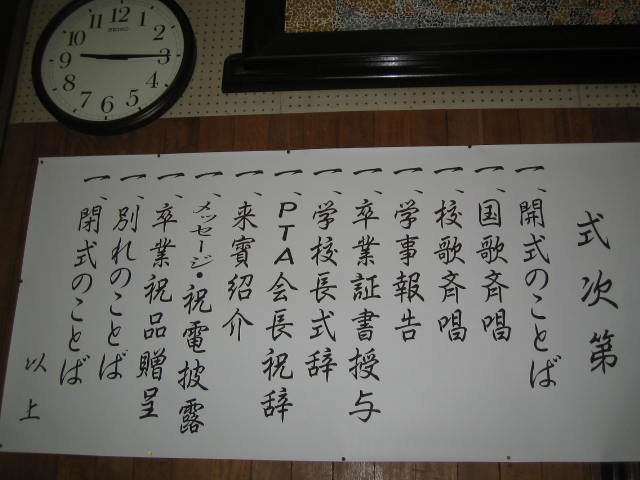 式次第
一、開式のことば
一、国歌斉唱
一、校歌斉唱
一、学事報告
一、卒業証書授与
一、学校長式辞
一、PTA会長祝辞
一、来賓紹介
一、メッセージ・祝電披露
一、卒業祝品贈呈
一、別れのことば
一、閉式のことば
以上
12
1
2
3
4
5
6
7
8
9
10
11
SEIKO